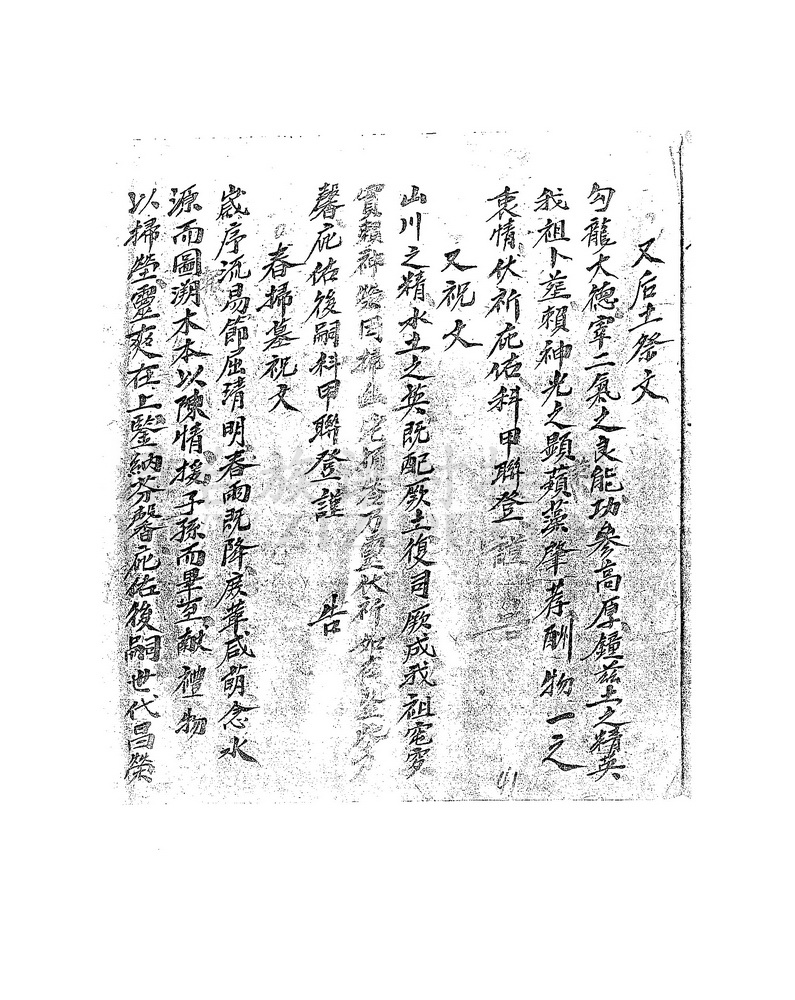 又后土祭文
勾龍大德宰二氣之良能功參高厚鐘茲土之精英
我祖卜塋賴神光之顯蘋藻肇荐酬物一之
衷情伏祈庇佑科甲聯登謹
又祝文
山川之精水土之英既配厥土復司厥成我祖窀穸
實賴神塋因掃
馨庇佑後嗣科甲聯登謹 告
春掃墓祝文
歲序流易節屆清明春雨既降庶草咸萌念水
源而圖溯木本以陳情援子孫而畢至献禮物
以掃塋靈爽在上鑒納芬馨庇佑後嗣世代昌榮
41